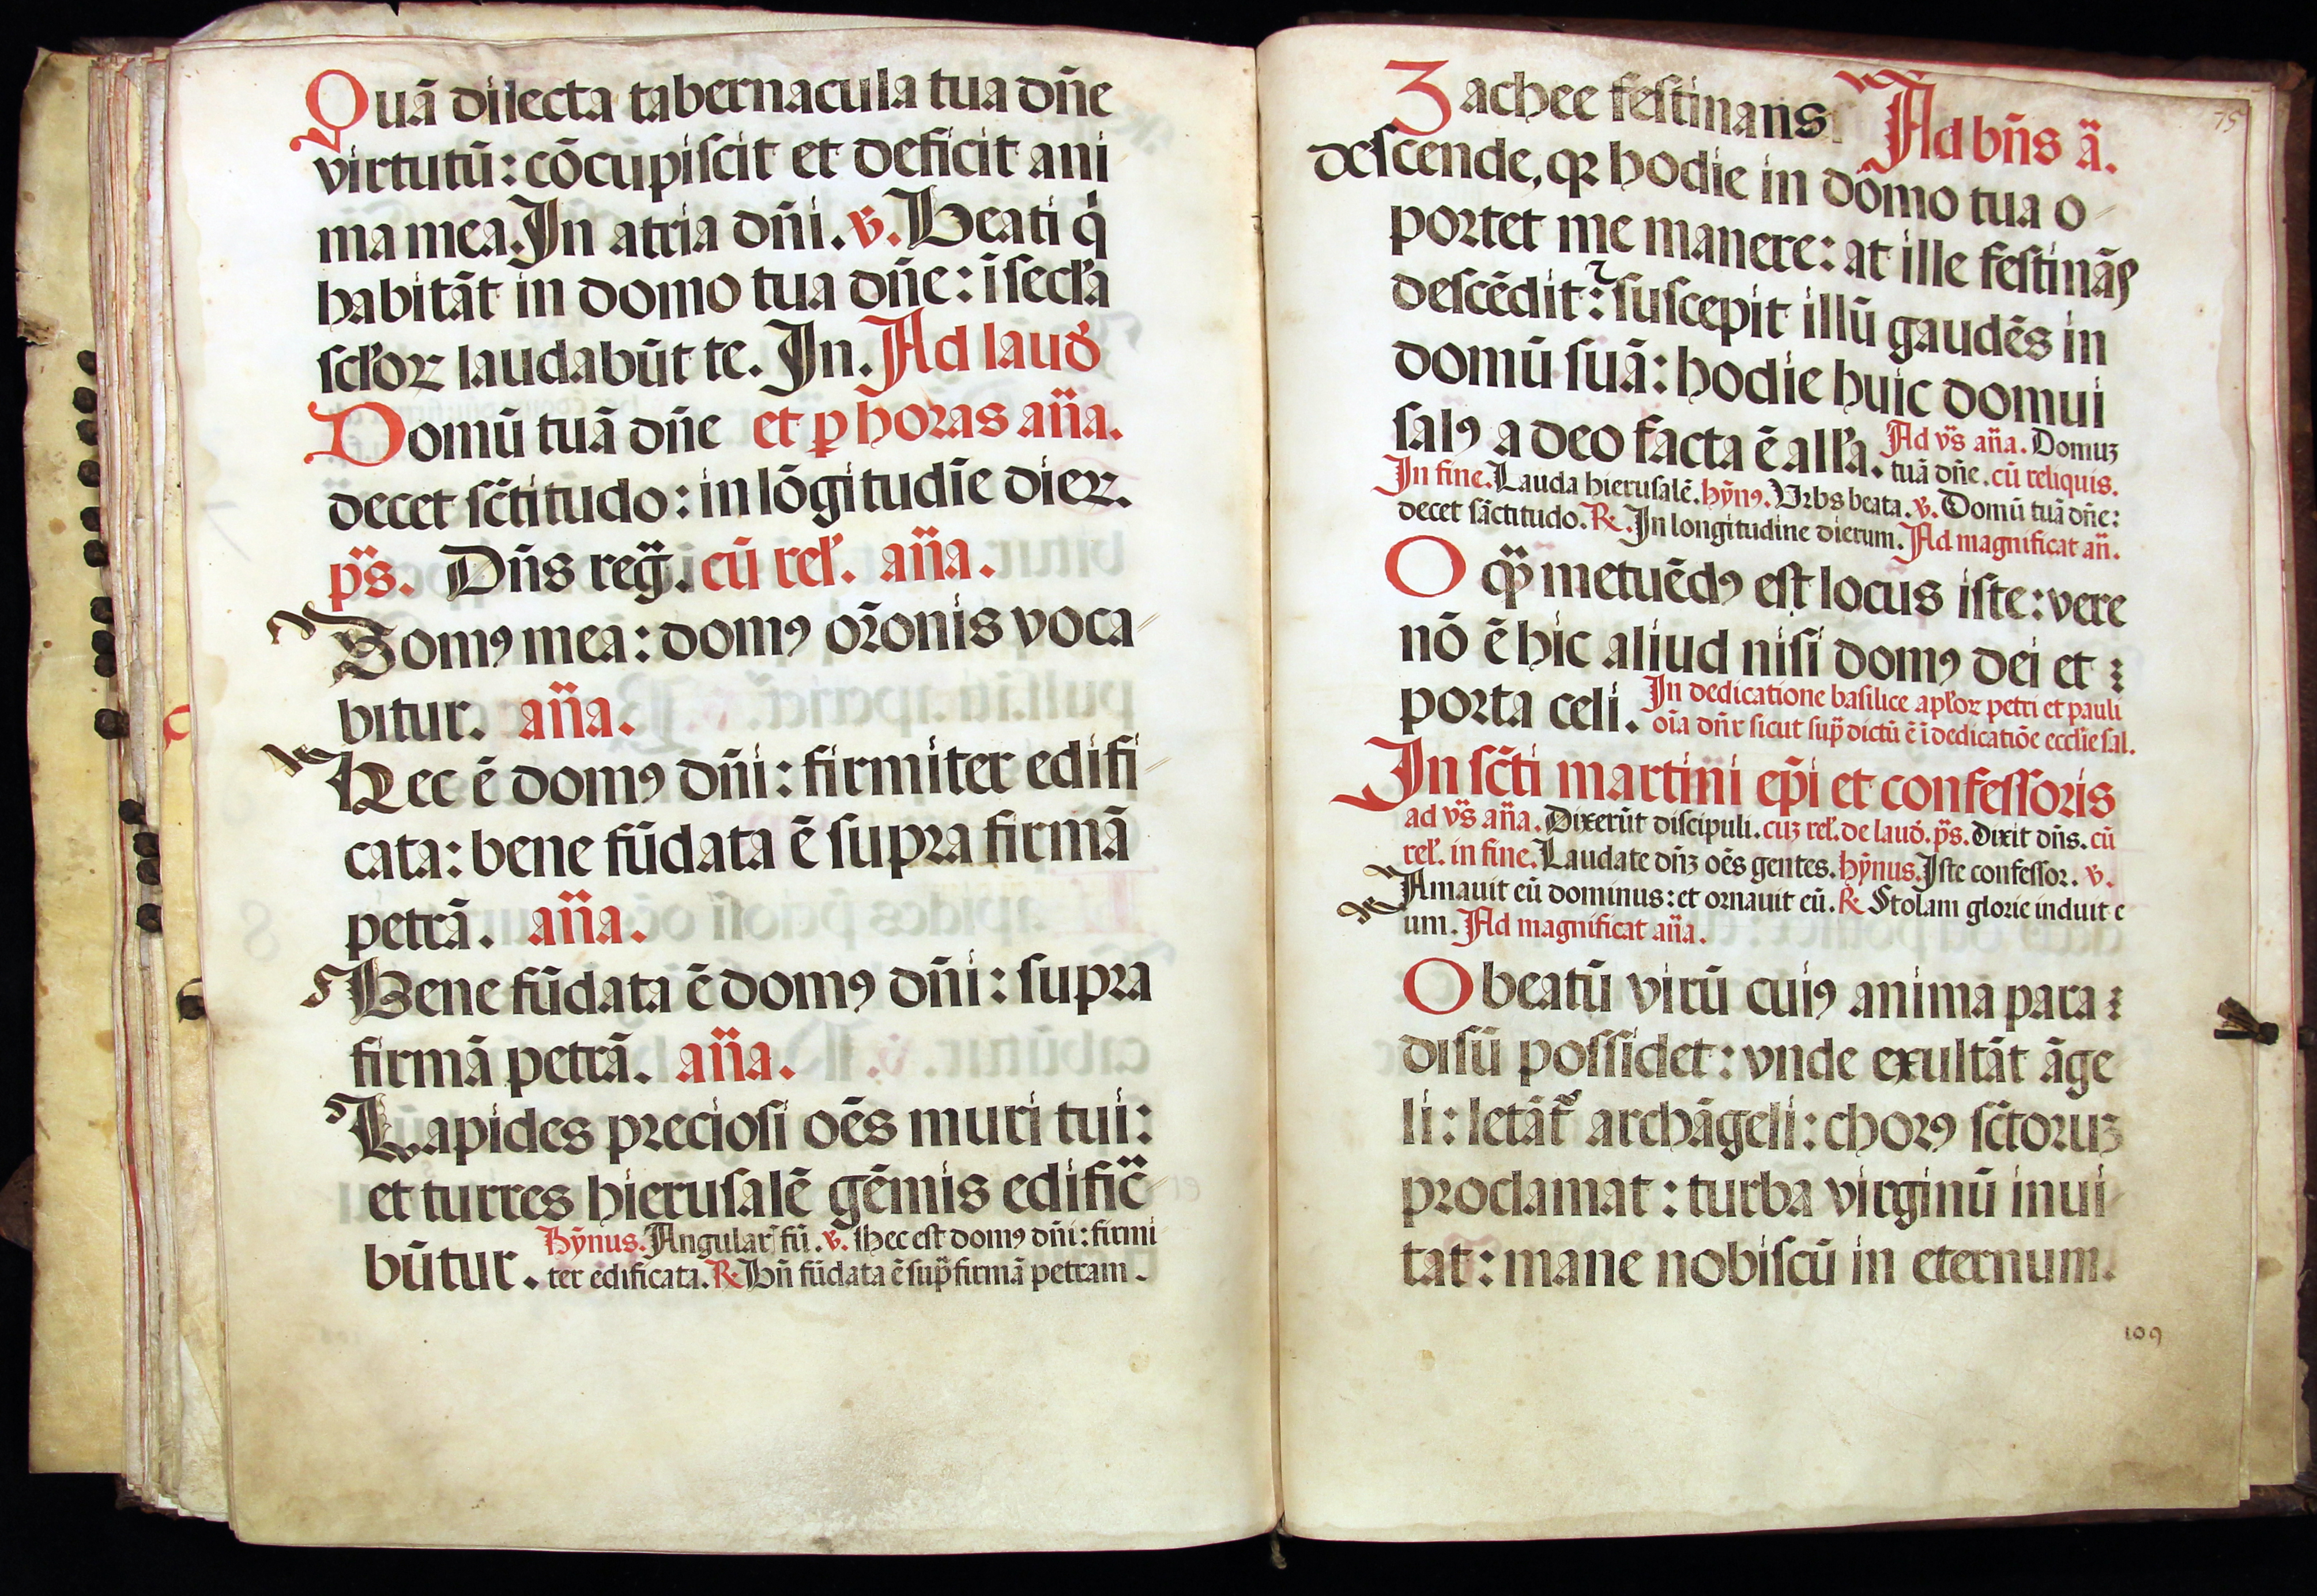 Quā dilecta tabernacula tua dñe
virtutū: cōcupiſcit et deficit ani
ma mea. In atria dñi. ꝟ. Beati q̇
habitāt in domo tua dñe: i ſecła
ſcłoꝝ laudabūt te. In. Ad laud̾
Domū tuā dñe et ꝑ horas aña.
decet ſc̃titudo: in lōgitudīe dieꝝ.
p̃s. Dñs reg̃. cū rel̾. aña.
Domꝰ mea: domꝰ oꝛ̃onis voca
bitur. aña.
Hec ē domꝰ dñi: firmiter edifi
cata: bene fūdata ē ſupra firmā
petrā. aña.
Bene fūdata ē domꝰ dñi: ſupra
firmā petrā. aña.
Lapides preciosi oēs muri tui:
et turres hieruſalē gēmis edific̃
būtur. Hỹnus. Angular̃ fū. ꝟ. Hec est domꝰ dñi: firmi
ter edificata. ℟ Bñ fūdata ē ſup̃ firmā petram.
75
Zachee feſtinans Ad bñs ã.
deſcende, qꝛ hodie in domo tua o
portet me manere: at ille feſtināſ
deſcēdit: ⁊ ſuſcepit illū gaudēs in
domū ſuā: hodie huic domui
ſalꝰ a deo facta ē all̾a. Ad v̄s aña. Domuꝫ
tuā dñe. cū reliquis.
In fine. Lauda hieruſalē. hỹnꝰ. Urbs beata. ꝟ. Domū tuā dñe:
decet ſāctitudo. ℟. In longitudine dierum. Ad magnificat añ.
O q̃ metuēdꝰ eſt locus iſte: vere
nō ē hic aliud niſi domꝰ dei et
porta celi. In dedicatione basilice apl̾oꝝ petri et pauli
oīa dñr ſicut ſup̃ dictū ē i dedicatiōe eccłie ſal.
In ſc̃ti martini ep̄i et confeſſoris
ad v̄s aña. Dixerūt diſcipuli. cuꝫ rel̾. de laud̾. p̃s. Dixit dñs. cū
rel̾. in fine. Laudate dñꝫ oēs gentes. hỹnus. Iſte confeſſor. ꝟ.
Amauit eū dominus: et ornauit eū. ℟ Stolam glorie induit e
um. Ad magnificat aña.
O beatū virū cuiꝰ anima para
diſū poſſidet: vnde exultāt āge
li: letāt᷑ archāgeli: chorꝰ ſc̃toruꝫ
proclamat: turba virginū inui
tat: mane nobiſcū in eternum.
109